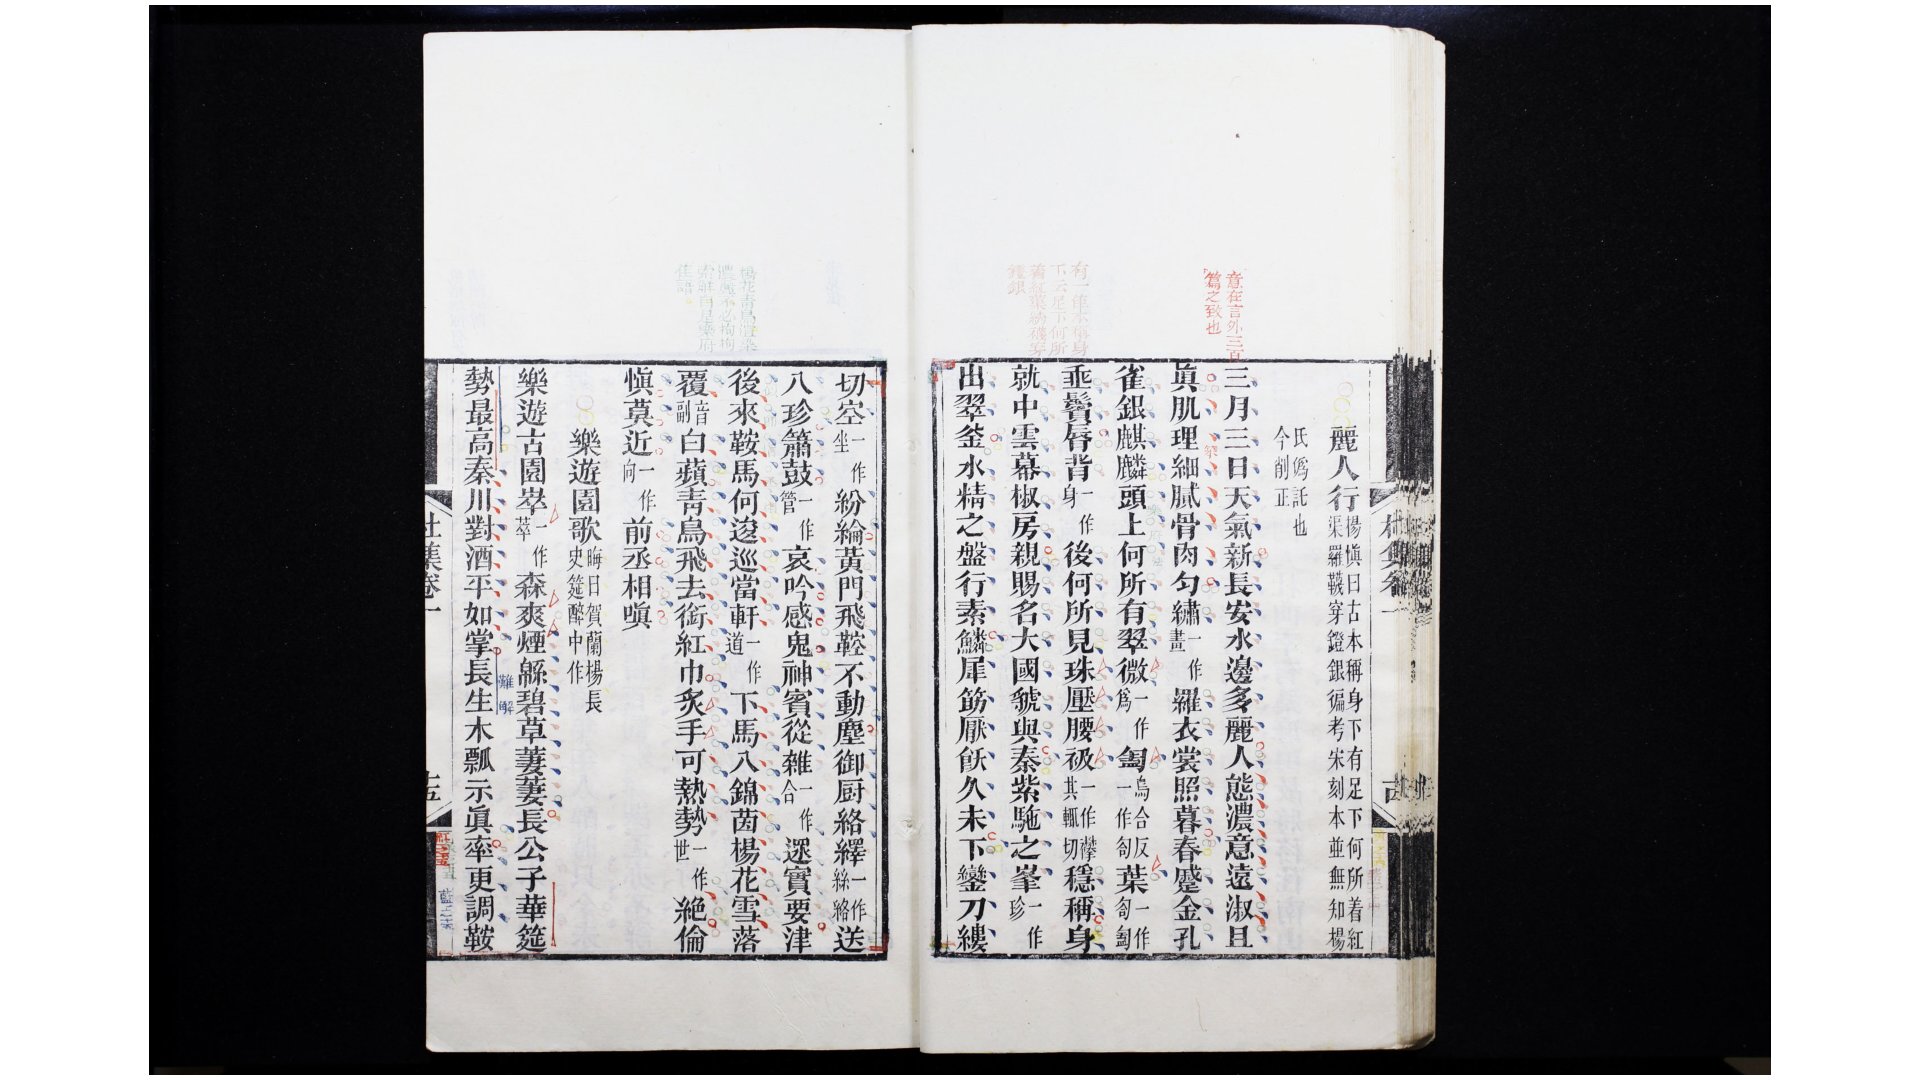 麗人行楊愼曰古本稱身下有足下何所着紅渠羅韈穿鐙銀徧考宋刻本並無知楊
氏僞託也今削正
三月三日天氣新長安水邊多麗人態濃意遠淑且
眞肌理細膩骨肉匀繡一作畫羅衣裳照暮春蹙金孔
雀銀麒麟頭上何所有翠微一作爲㔩烏合反一作匌葉一作匌㔩
垂鬢唇背一作身後何所見珠壓腰衱一作襻其輒切穩稱身
就中雲幕椒房親賜名大國虢與秦紫駞之峯一作珍
出翠釜水精之盤行素鱗犀筯厭飫久未下鑾刀縷
意在言外三百
篇之致也
有一作本稱身
下云足下何所
着紅蕖羅襪穿
鐙銀
切空一作坐紛綸黃門飛鞚不動塵御厨絡繹一作絲絡送
八珍簫鼓一作管哀吟感鬼神賓從雜一作合遝實要津
後來鞍馬何逡巡當軒一作道下馬入錦茵楊花雪落
覆音副白蘋青鳥飛去銜紅巾炙手可熱勢一作世絶倫
愼莫近一作向前丞相嗔
樂遊園歌晦日賀蘭楊長史筵醉中作
樂遊古園崒一作萃森爽煙緜碧草萋萋長公子華筵
勢最高秦川對酒平如掌長生木瓢示眞率更調鞍
楊花青鳥渲染
濃麗不必拘拘
索解自是樂府
佳語
難解
杜集卷一
十五